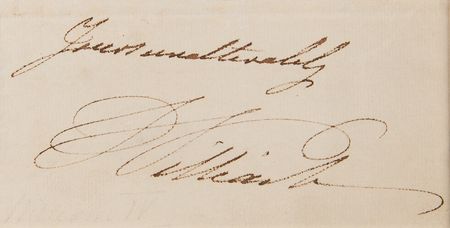 Yours unalterably
William